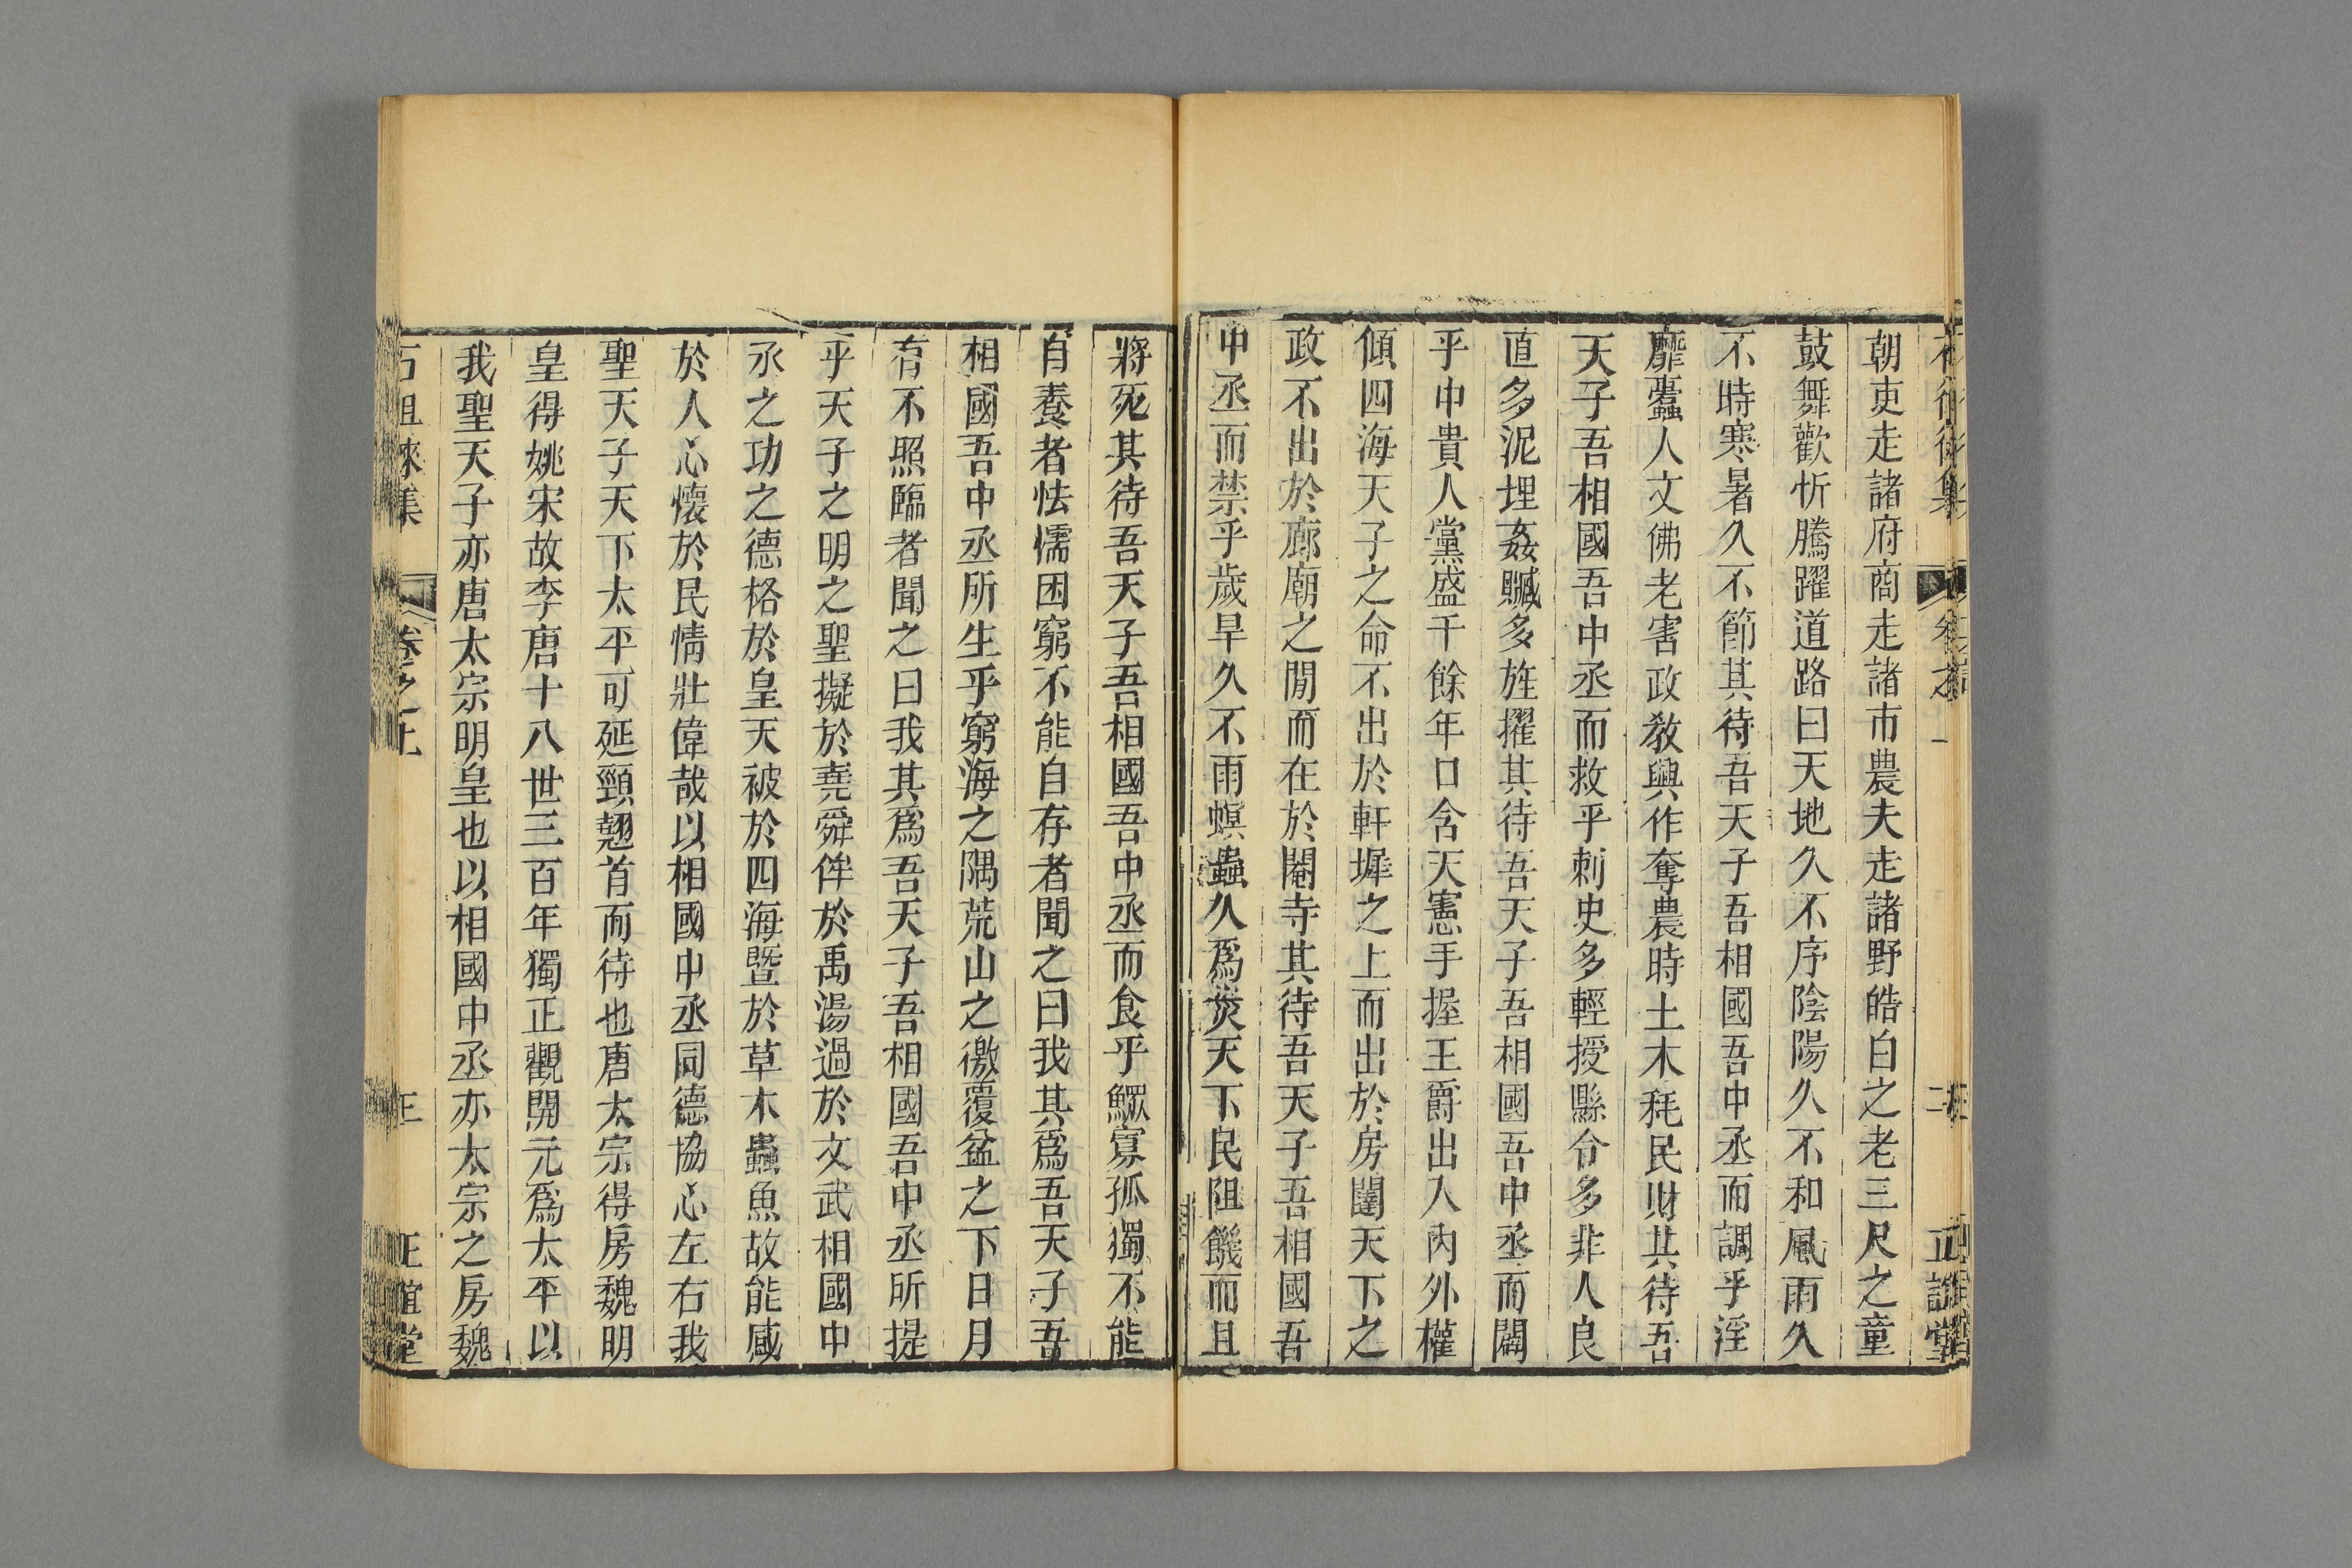 朝吏走諸府商走諸市農夫走諸野皓白之老三尺之童
鼓舞歡忻騰躍道路曰天地久不序陰陽久不和風雨久
不時寒暑久不節其待吾天子吾相國吾中丞而調乎淫
靡蠹人文佛老害政教興作奪農時土木秏民財其待吾
天子吾相國吾中丞而救乎刺史多輕授縣令多非人良
直多泥埋姦贓多旌擢其待吾天子吾相國吾中丞而闢
乎中貴人黨盛千餘年口含天憲手握王爵出入內外權
傾四海天子之命不出於軒墀之上而出於房闥天下之
政不出於廊廟之閒而在於閹寺其待吾天子吾相國吾
中丞而禁乎歲旱久不雨螟蟲久爲災天下民阻饑而且
將死其待吾天子吾相國吾中丞而食乎鰥寡孤獨不能
自養者怯懦困窮不能自存者聞之曰我其爲吾天子吾
相國吾中丞所生乎窮海之隅荒山之徼覆盆之下日月
有不照臨者聞之曰我其爲吾天子吾相國吾中丞所提
乎天子之明之聖擬於堯舜侔於禹湯過於文武相國中
丞之功之德格於皇天被於四海暨於草木蟲魚故能感
於人心懷於民情壯偉哉以相國中丞同德協心左右我
聖天子天下太平可延頸翹首而待也唐太宗得房魏明
皇得姚宋故李唐十八世三百年獨正觀開元爲太平以
我聖天子亦唐太宗明皇也以相國中丞亦太宗之房魏
石徂徠集
卷之上
正誼堂